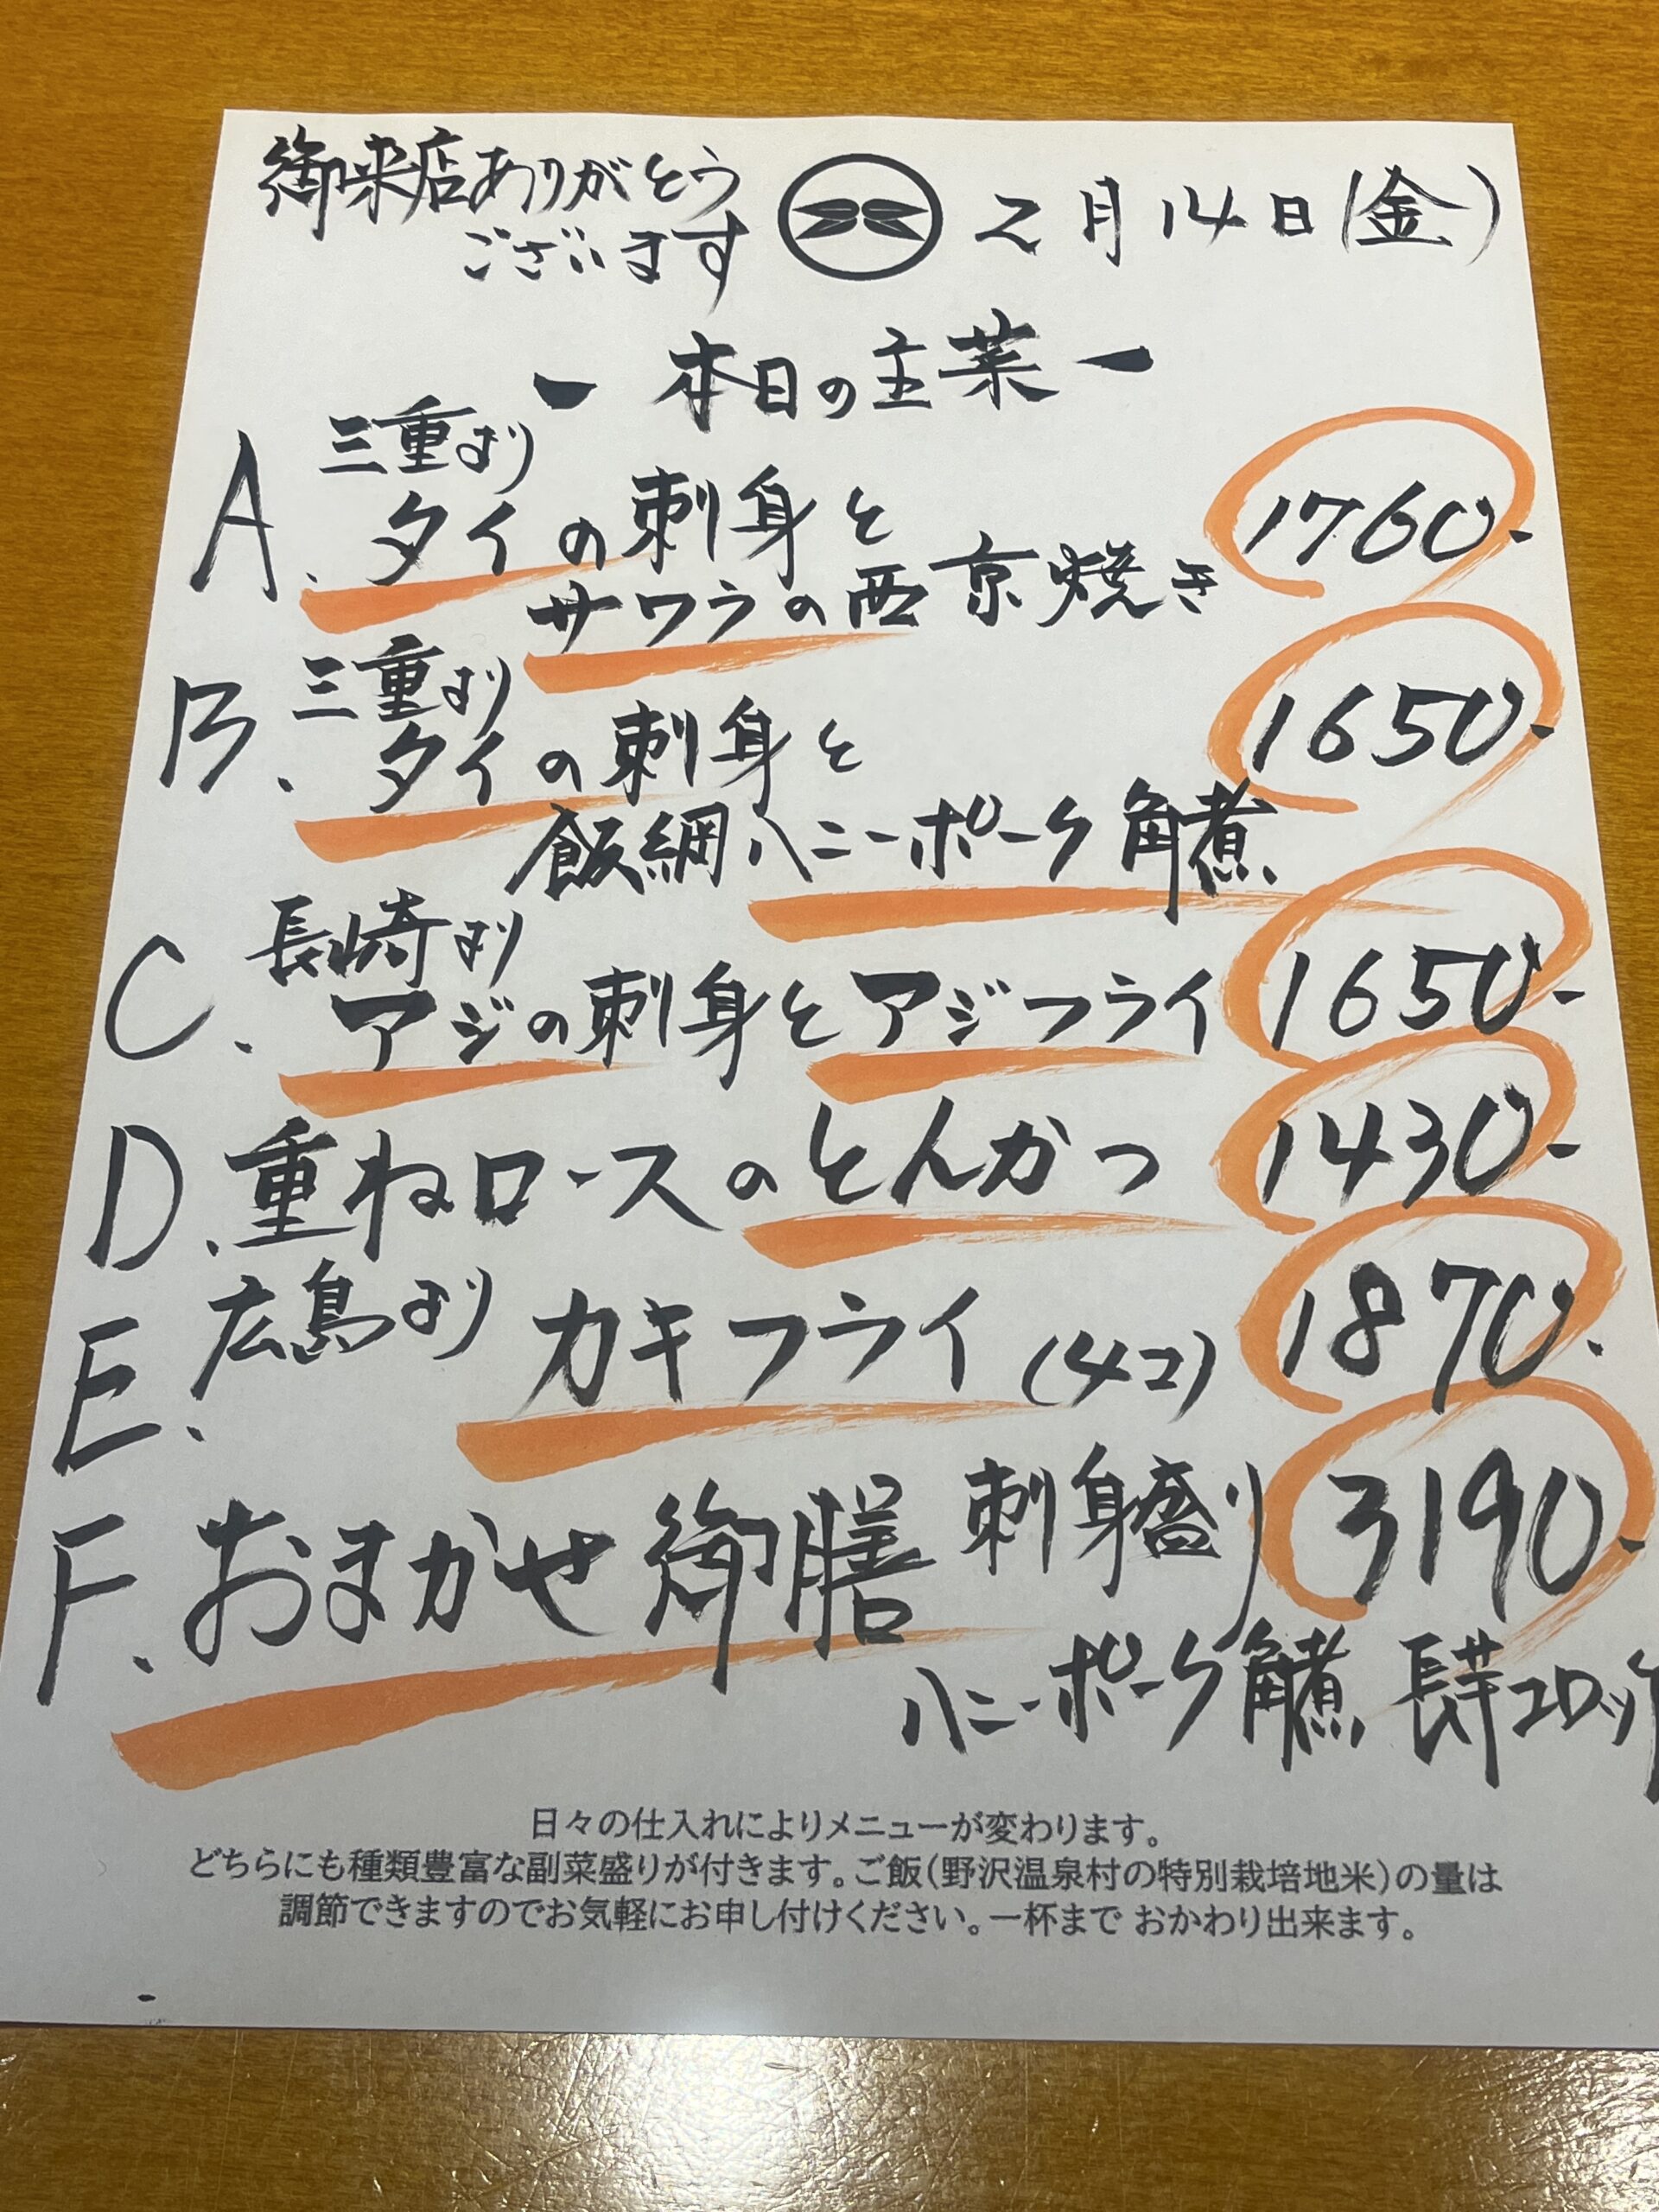 御来店ありがとう
ございます
2月14日(金)
ー本日の主菜ー
A.三重より
タイの刺身と
サワラの西京焼き
1760-
B.三重より
タイの刺身と
飯綱ハニーポーク角煮
1650-
C.長崎より
アジの刺身とアジフライ
1650-
D.重ねロースのとんかつ
1430-
E.広島より カキフライ(4コ)
1870-
F.おまかせ御膳 刺身盛り
3190-
ハニーポーク角煮 長芋コロッケ
日々の仕入れによりメニューが変わります。
どちらにも種類豊富な副菜盛りが付きます。ご飯(野沢温泉村の特別栽培地米)の量は
調節できますのでお気軽にお申し付けください。一杯まで おかわり出来ます。